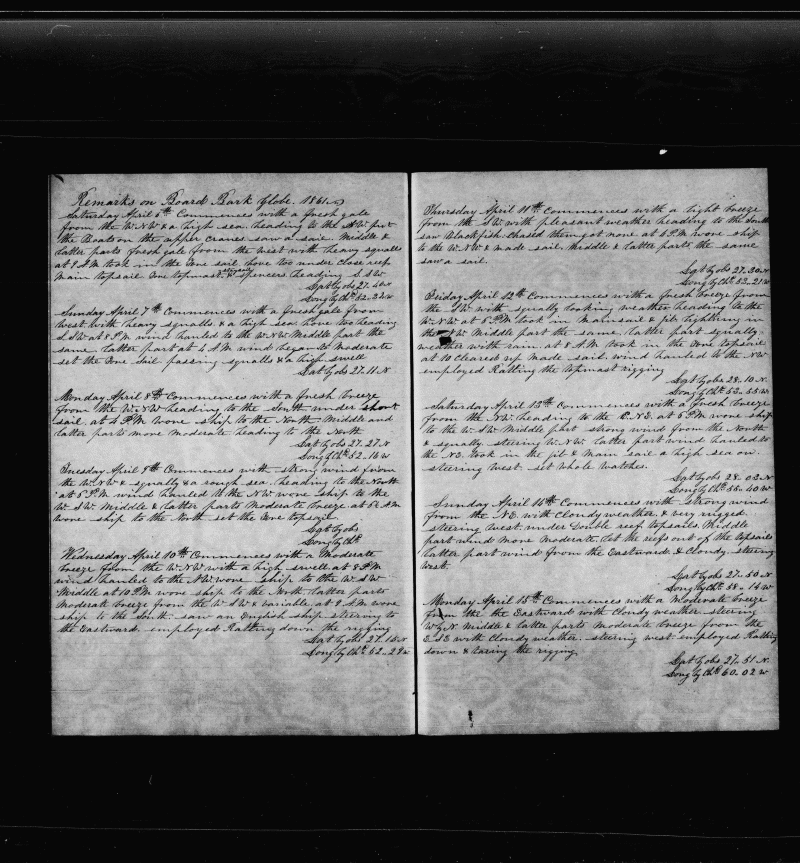 Remarks on Board Bark Globe. 1861
Saturday April 6th Commences with a fresh gale
from the W.N.W & a high sea. heading to the N.W put
the Boats on the upper cranes saw a sail. Middle &
latter parts fresh gale from the west with heavy squalls
at 1 A.M took in the fore sail hove too under close reef
main topsail. fore topmast & Spencers heading S.S.W
Lat by obs 27.40 N
Long by Chr 52.
Sunday April 7th Commences with a fresh gale from
West with heavy squalls & a high sea, hove too heading
S.S.W at 8 P.M wind hauled to the W.N.W Middle part the
same latter part at 4 A.M wind began to moderate
set the fore sail passing squalls & a high swell
Lat by obs 27.11 N
Monday April 8th Commences with a fresh breeze
from the W.N.W heading to the South under short
sail. at 4 P.M wore ship to the North. Middle and
latter parts more moderate heading to the North
Lat by obs 27.27 N
Long by Chr 52-16 W
Tuesday April 9th Commences with strong wind from
the W.N.W & squally & a rough sea. heading to the North
at 6 P.M wind hauled to the N.W wore ship to the
W.S.W. Middle & latter parts Moderate breeze at A.M
wore ship to the North set the fore topsail
Lat by obs
Long by Chr
Wednesday April 10th Commences with a moderate
breeze from the W.N.W with a high swell at 8 P.M
wind hauled to the N.W wore ship to the W.S.W
Middle at 10 P.M wore ship to the North latter parts
Moderate breeze from the W.S.W & variable at 8 A.M wore
ship to the South. saw an English ship steering to
the Eastward. employed Ratling down the rigging
Lat by obs 27.16 N
Long by Chr 52-29 W
Thursday April 11th Commences with a light breeze
from the S.W with pleasant weather heading to the South
saw Blackfish chased them got none at 6 P.M wore ship
to the W.N.W & made sail. Middle & latter parts the same
saw a sail.
Lat by obs 27-30 N
Long by Chr 53-21 W
Friday April 12th Commences with a fresh breeze from
the S.W with squally looking weather heading to the
W.N.W at 6 P.M took in Mainsail & jib lightning in
the N.W Middle part the same, latter part squally
weather with rain. at 8 A.M took in the fore topsail
at 10 Cleared up made sail. wind hauled to the N.W
employed Ratling the topmast rigging
Lat by obs 28-10 N
Long by Chr 53-55 W
Saturday April 13th Commences with a fresh breeze
from the N.E heading to the N.E. at 6 P.M wore ship
to the W.S.W Middle part strong wind from the North
& squally. steering W.N.W. latter part wind hauled to
the N.E. took in the jib & Main sail a high sea on.
steering West. set whole watches.
Lat by obs 28-02 N
Long by Chr 55-40 W
Sunday April 14th Commences with strong wind
from the N.E. with Cloudy weather & very rugged.
steering West. under Double reef topsails. Middle
part wind more Moderate. let the reefs out of the topsails
latter part wind from the Eastward & Cloudy. steering
West.
Lat by obs 27-50 N
Long by Chr 58-14 W
Monday April 15th Commences with a moderate breeze
from the the Eastward with Cloudy weather steering
W by N. Middle & latter parts moderate breeze from the
E.S.E with Cloudy weather. steering west employed Ratling
down & taring the rigging
Lat by obs 27-51 N.
Long by Chr 60-02 W